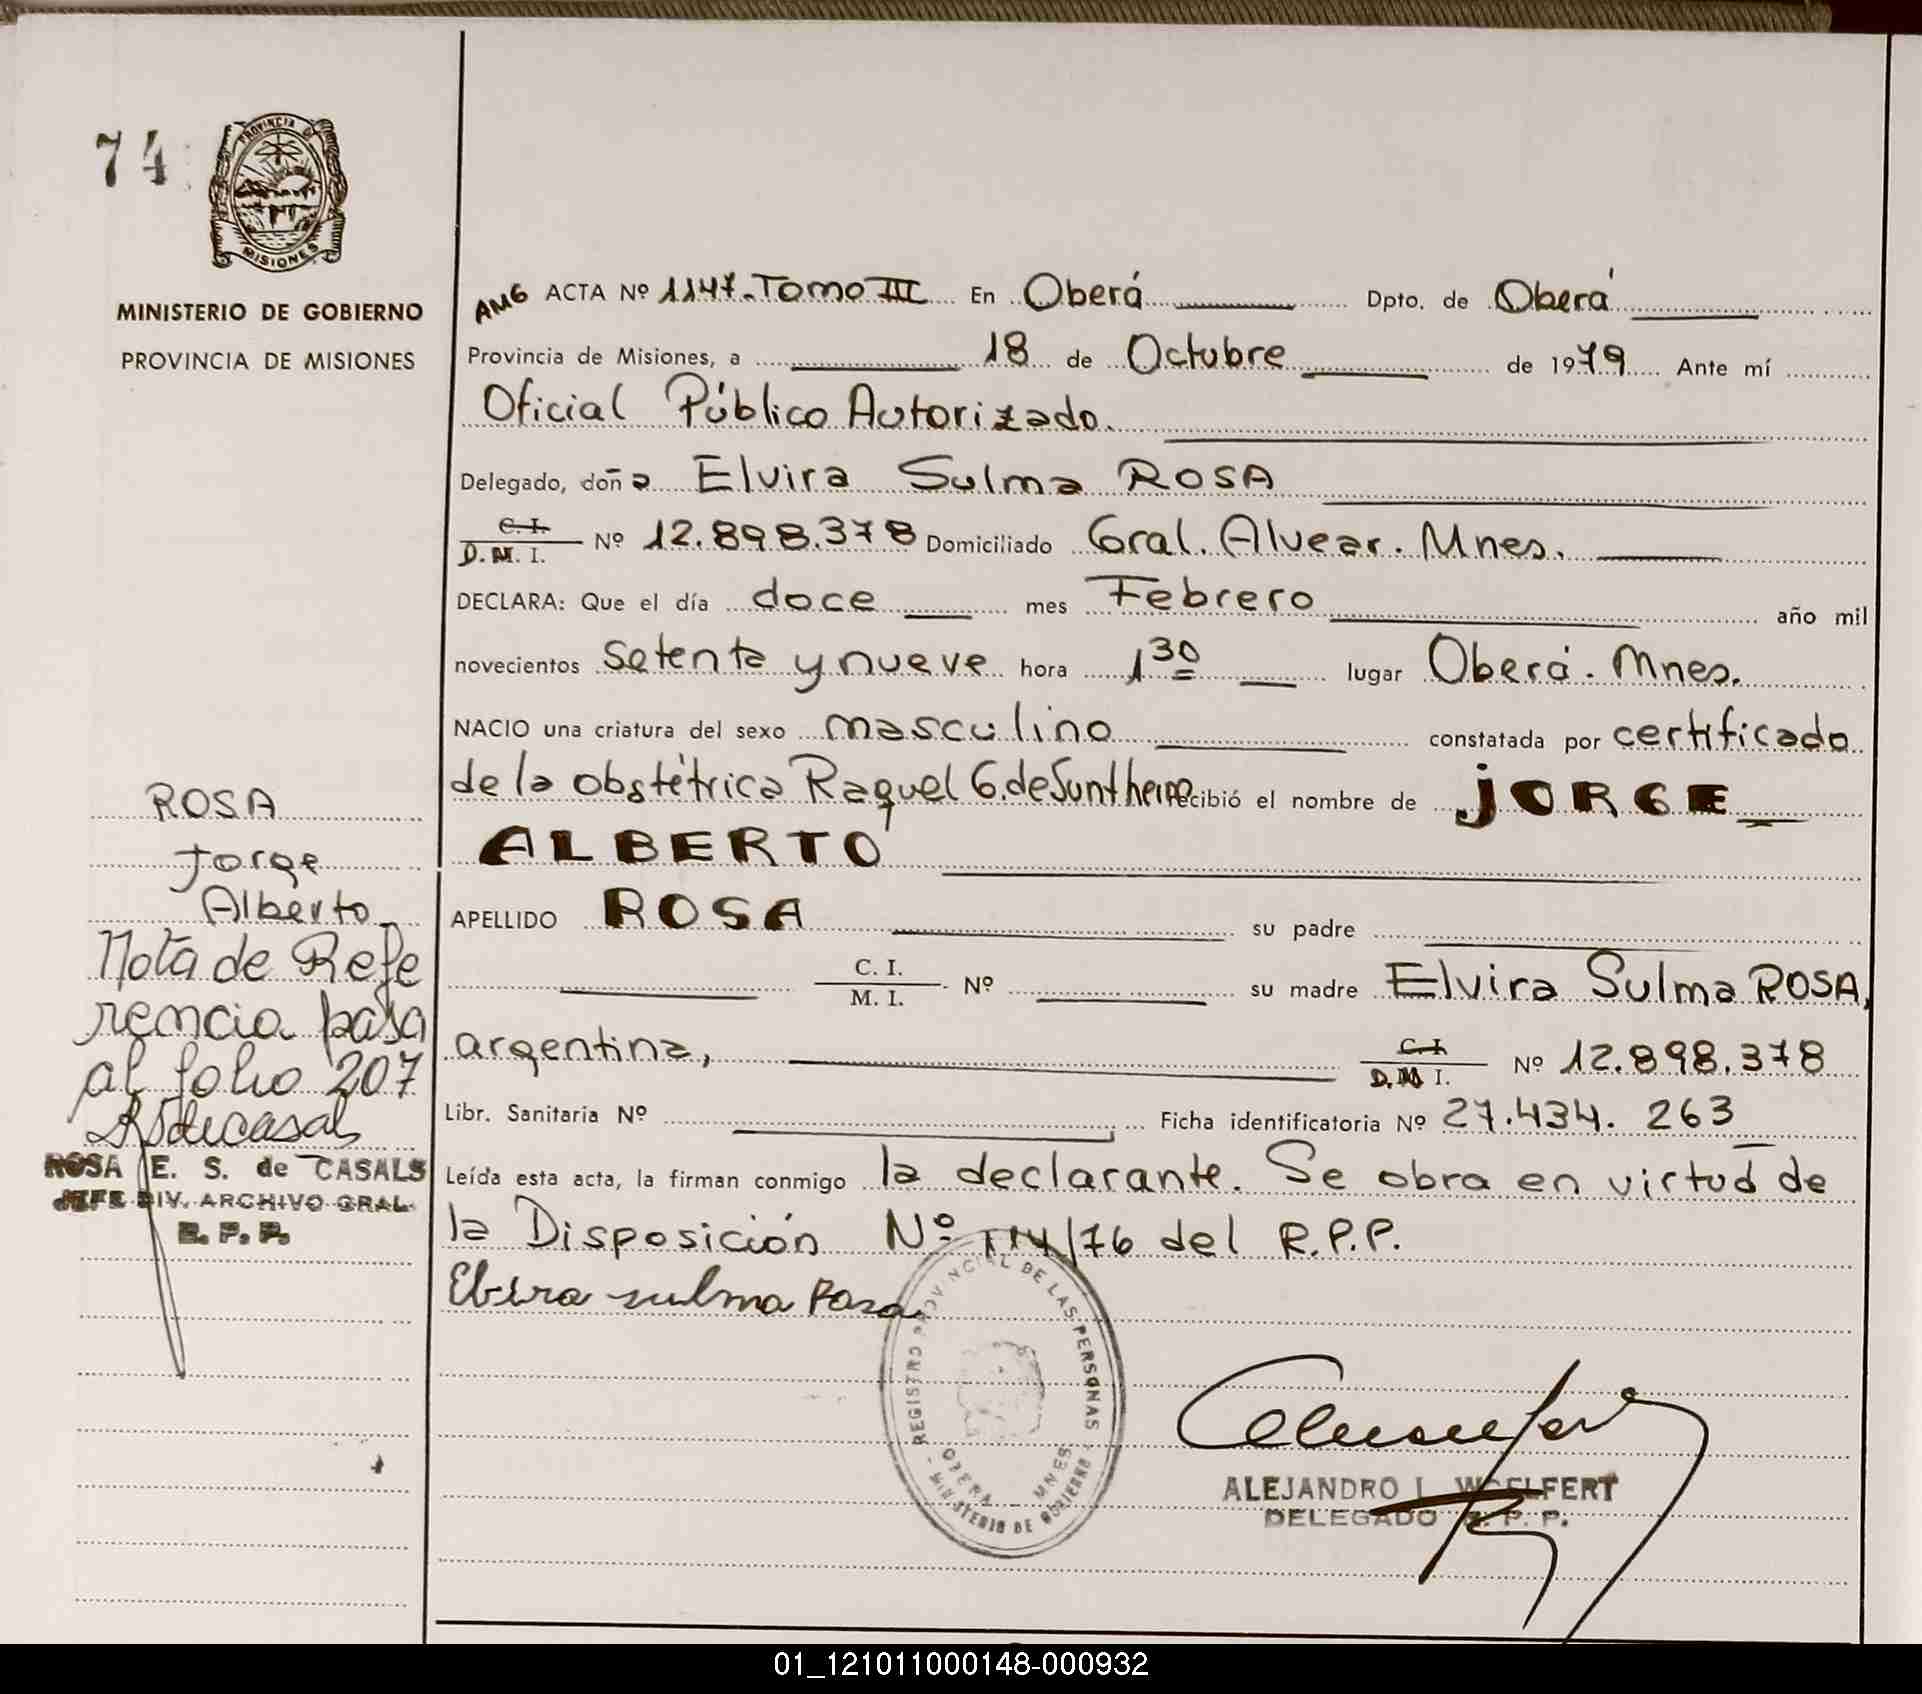 74
PROVINCIA D
MISIONES
MINISTERIO DE GOBIERNO
PROVINCIA DE MISIONES
AMG ACTA Nº 1147. Tomo III En Oberá Dpto. de Oberá
Provincia de Misiones, a 18 de Octubre de 1979 Ante mí
Oficial Público Autorizado.
Delegado, doña Elvira Sulma ROSA
C. I.
D. M. I. Nº 12.898.378 Domiciliado Gral. Alvear. Mnes.
DECLARA: Que el día doce mes Febrero año mil
novecientos setenta y nueve hora 1 30 lugar Oberá. Mnes.
NACIO una criatura del sexo masculino constatada por certificado
de la obstétrica Raquel G. de Suntheim recibió el nombre de JORGE
ALBERTO
APELLIDO ROSA su padre
C. I.
M. I. Nº su madre Elvira Sulma ROSA,
argentina, C. I.
D. M. I. Nº 12.898.378
Libr. Sanitaria Nº Ficha identificatoria Nº 27.434. 263
Leída esta acta, la firman conmigo la declarante. Se obra en virtud de
la Disposición Nº 114/76 del R.P.P.
Elvira sulma Rosa
REGISTRO PROVINCIAL DE LAS PERSONAS
- MINISTERIO DE GOBIERNO -
OBERA - MNES
ALEJANDRO L. WOELFERT
DELEGADO R. P. P.
ROSA
Jorge
Alberto
Nota de Refe
rencia pasa
al folio 207
ROSA E. S. de CASALS
JEFE DIV. ARCHIVO GRAL.
R. P. P.
01_121011000148-000932